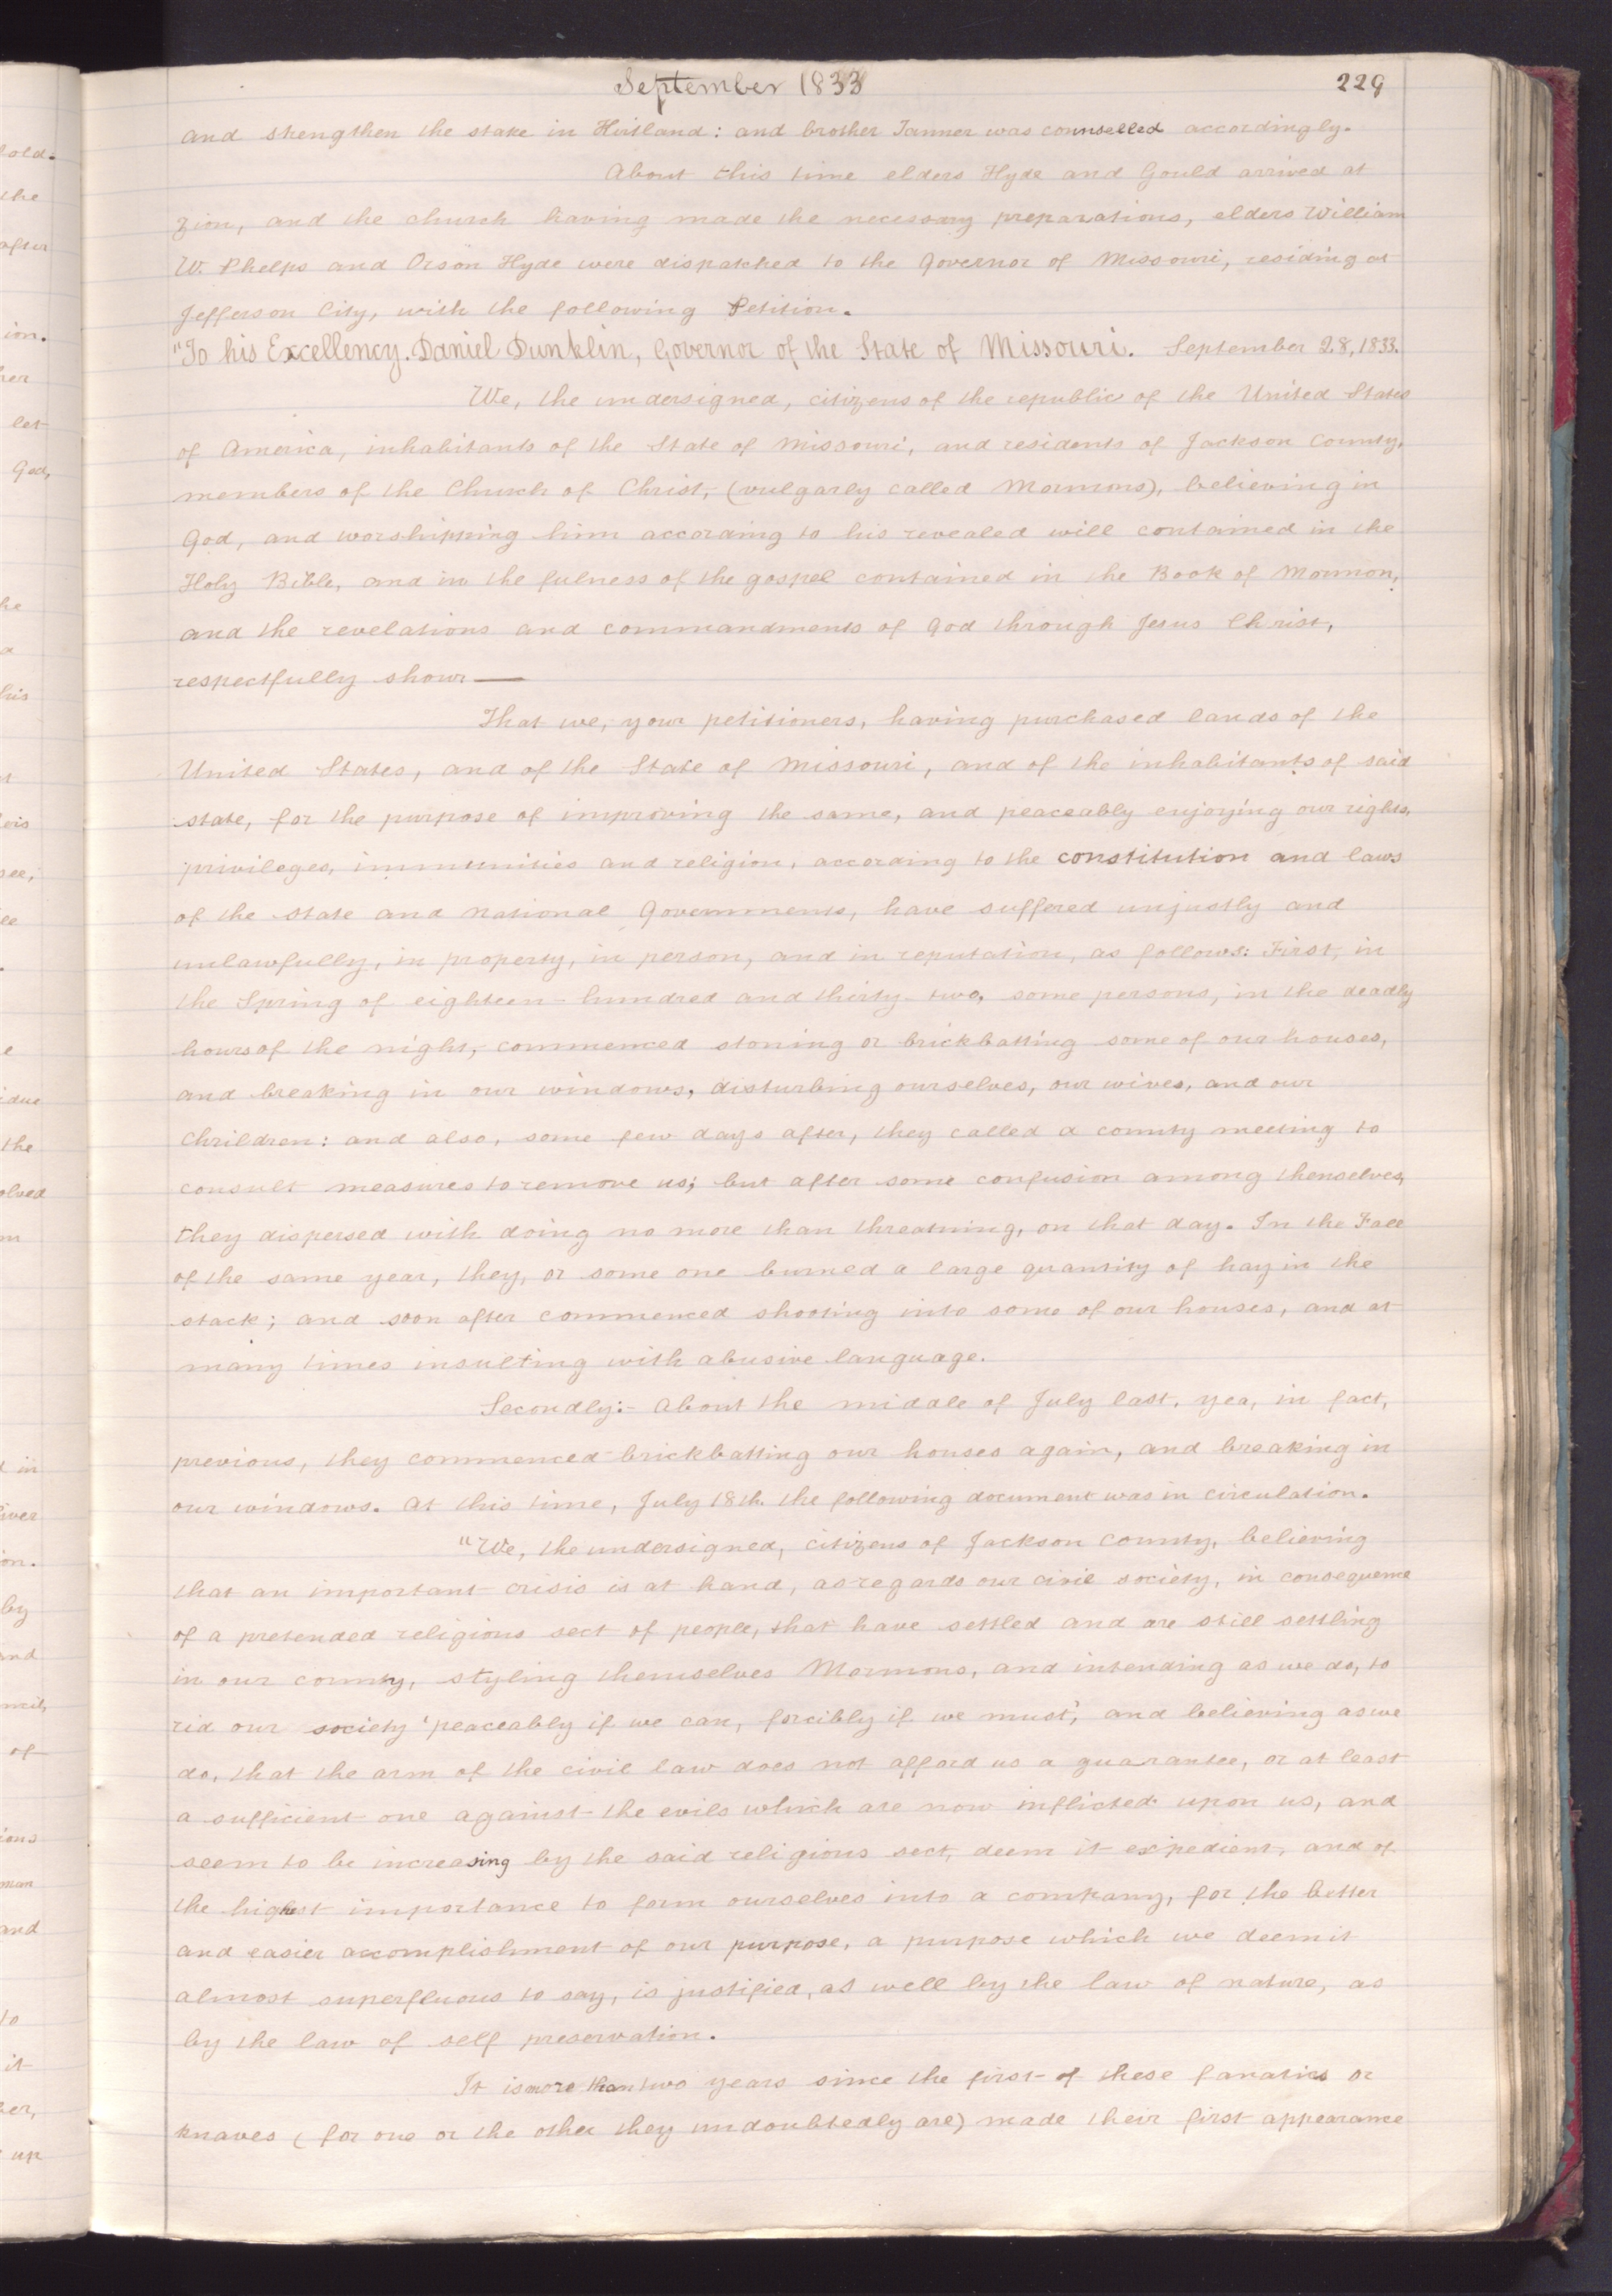 September 1833
229
and strengthen the stake in Kirtland: and brother Tanner was counselled accordingly.
About this time elders Hyde and Gould arrived at
Zion, and the church having made the necessary preparations, elders William
W. Phelps and Orson Hyde were dispatched to the Governor of Missouri, residing at
Jefferson City, with the following Petition.
"To his Excellency. Daniel Dunklin, Governor of the State of Missouri. September 28, 1833.
We, the undersigned, citizens of the republic of the United States
of America, inhabitants of the State of Missouri, and residents of Jackson County,
members of the Church of Christ, (vulgarly called Mormons), believing in
God, and worshipping him according to his revealed will contained in the
Holy Bible, and in the fulness of the gospel contained in the Book of Mormon,
and the revelations and commandments of God through Jesus Christ,
respectfully show—
That we, your petitioners, having purchased lands of the
United States, and of the State of Missouri, and of the inhabitants of said
state, for the purpose of improving the same, and peaceably enjoying our rights,
privileges, immunities and religion, according to the constitution and laws
of the state and national Governments, have suffered unjustly and
unlawfully, in property, in person, and in reputation, as follows: First, in
the Spring of eighteen-hundred and thirty-two, some persons, in the deadly
hours of the night, commenced stoning or brickbatting some of our houses,
and breaking in our windows, disturbing ourselves, our wives, and our
Chrildren: and also, some few days after, they called a county meeting to
consult measures to remove us; but after some confusion among themselves,
they dispersed with doing no more than threatning, on that day. In the Fall
of the same year, they, or some one burned a large quantity of hay in the
stack; and soon after commenced shooting into some of our houses, and at
many times insulting with abusive language.
Secondly:- About the middle of July last, yea, in fact,
previous, they commenced brickbatting our houses again, and breaking in
our windows. At this time, July 18th. the following document was in circulation.
"We, the undersigned, citizens of Jackson County, believing
that an important crisis is at hand, as regards our civil society, in consequence
of a pretended religious sect of people, that have settled and are still settling
in our county, styling themselves Mormons, and intending as we do, to
rid our society 'peaceably if we can, forcibly if we must', and believing as we
do, that the arm of the civil law does not afford us a guarantee, or at least
a sufficient one against the evils which are now inflicted upon us, and
seem to be increasing by the said religious sect, deem it expedient, and of
the highest importance to form ourselves into a company, for the better
and easier accomplishment of our purpose, a purpose which we deem it
almost superfluous to say, is justified, as well by the law of nature, as
by the law of self preservation.
It is more than two years since the first of these fanatics or
knaves (for one or the other they undoubtedly are) made their first appearance